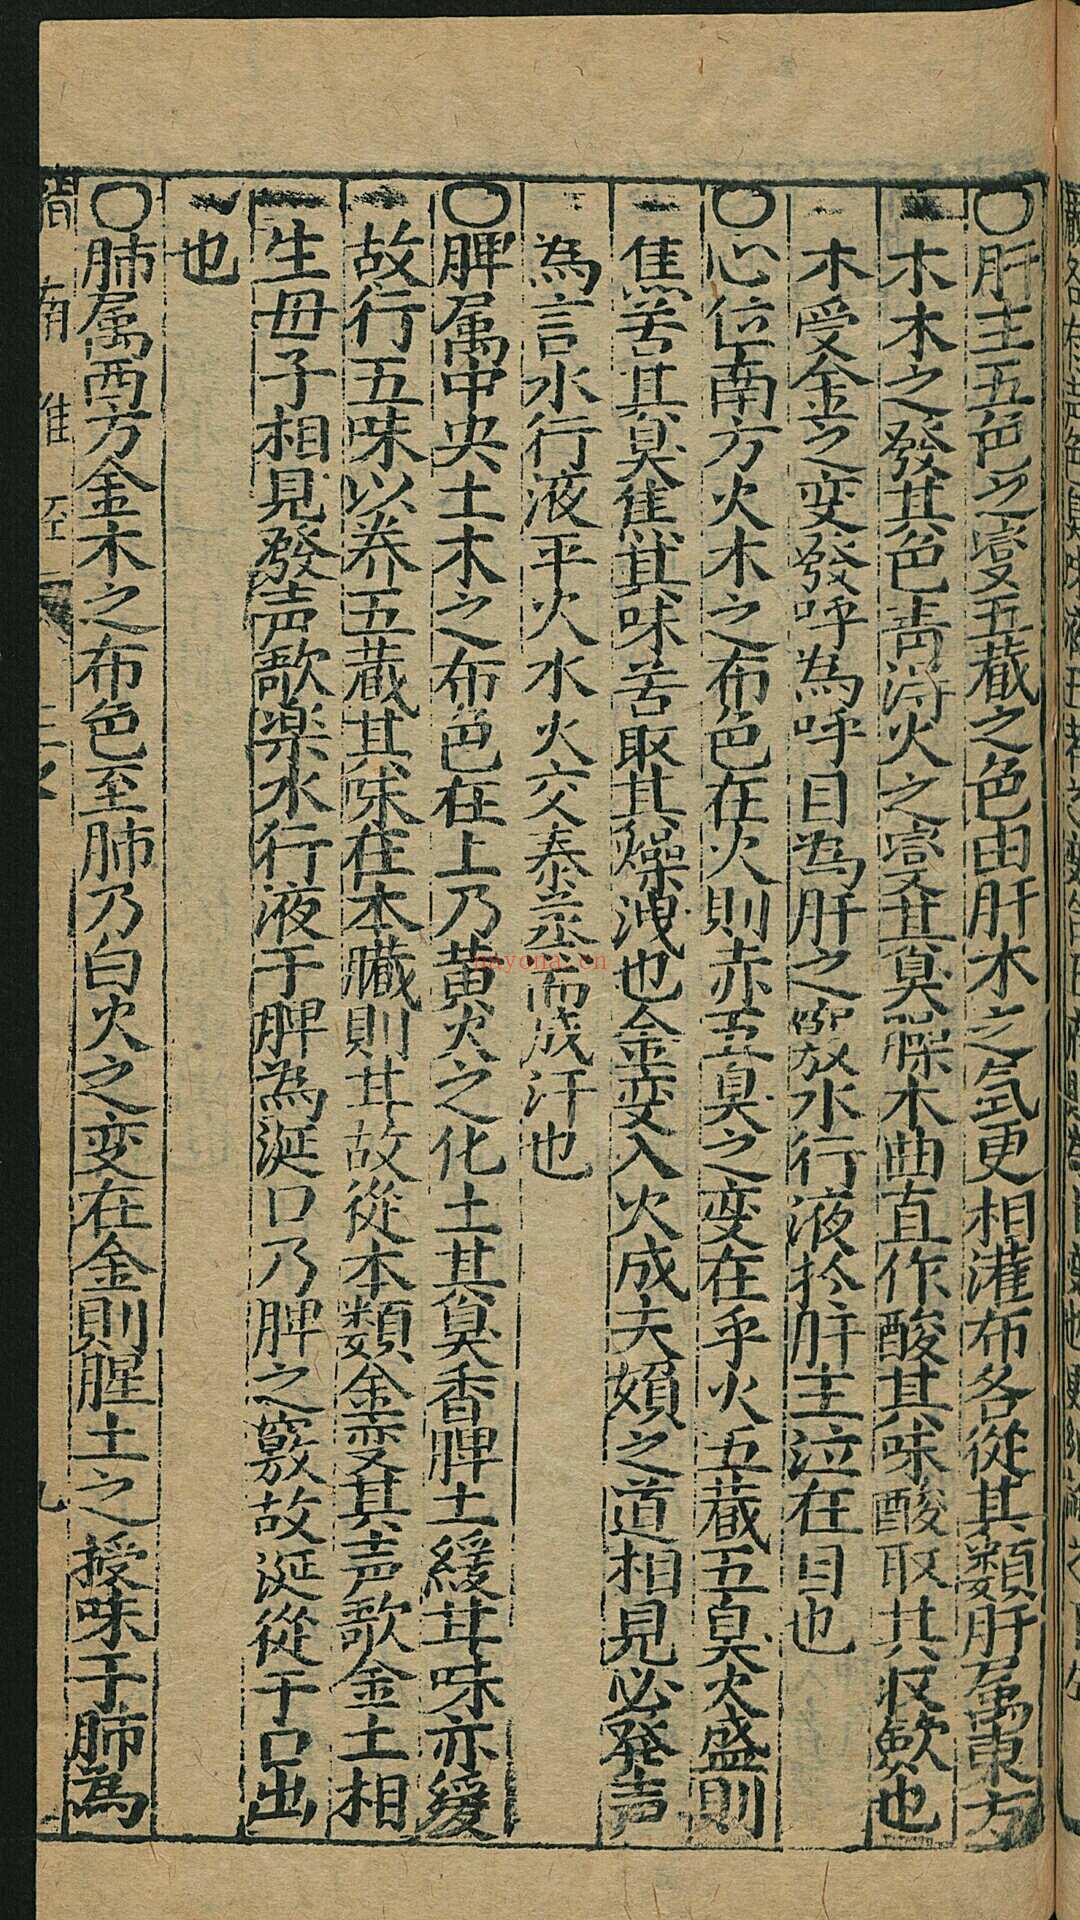 〇肝主五色之變五藏之色由肝木之氣更相灌布各從其類肝属東方
木木之發其色青淂火之變其臭臊木曲直作酸其味酸取其収歛也
木受金之变發呼為呼目為肝之竅故水行液扵肝主泣在目也
〇心位南方火木之布色在火則赤五臭之变在乎火五藏五臭火盛則
焦苦其臭焦其味苦取其燥洩也金变入火成夫婦之道相見必發声
為言水行液平火水火交泰蒸而成汗也
〇脾属中央土木之布色在上乃黄火之化土其臭香脾土緩其味亦緩
故行五味以养五藏其味在本臟則甘故從本類金变其声歌金土相
生毋子相見發声歌楽水行液于脾為涎口乃脾之竅故涎從于口出
也
〇肺属西方金木之布色至肺乃白火之变在金則腥土之授味于肺為
hayona.cn